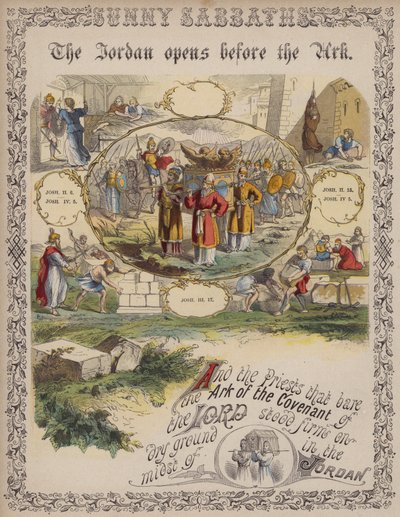 SUNNY SABBATHS
The Jordan opens before the Ark.
JOSH. II. 6.
JOSH. IV. 8.
JOSH. II. 15.
JOSH. IV 5.
JOSH. III. 17.
And the Priests that bare
the Ark of the Covenant of
the LORD stood firm on
dry ground in the
midst of JORDAN